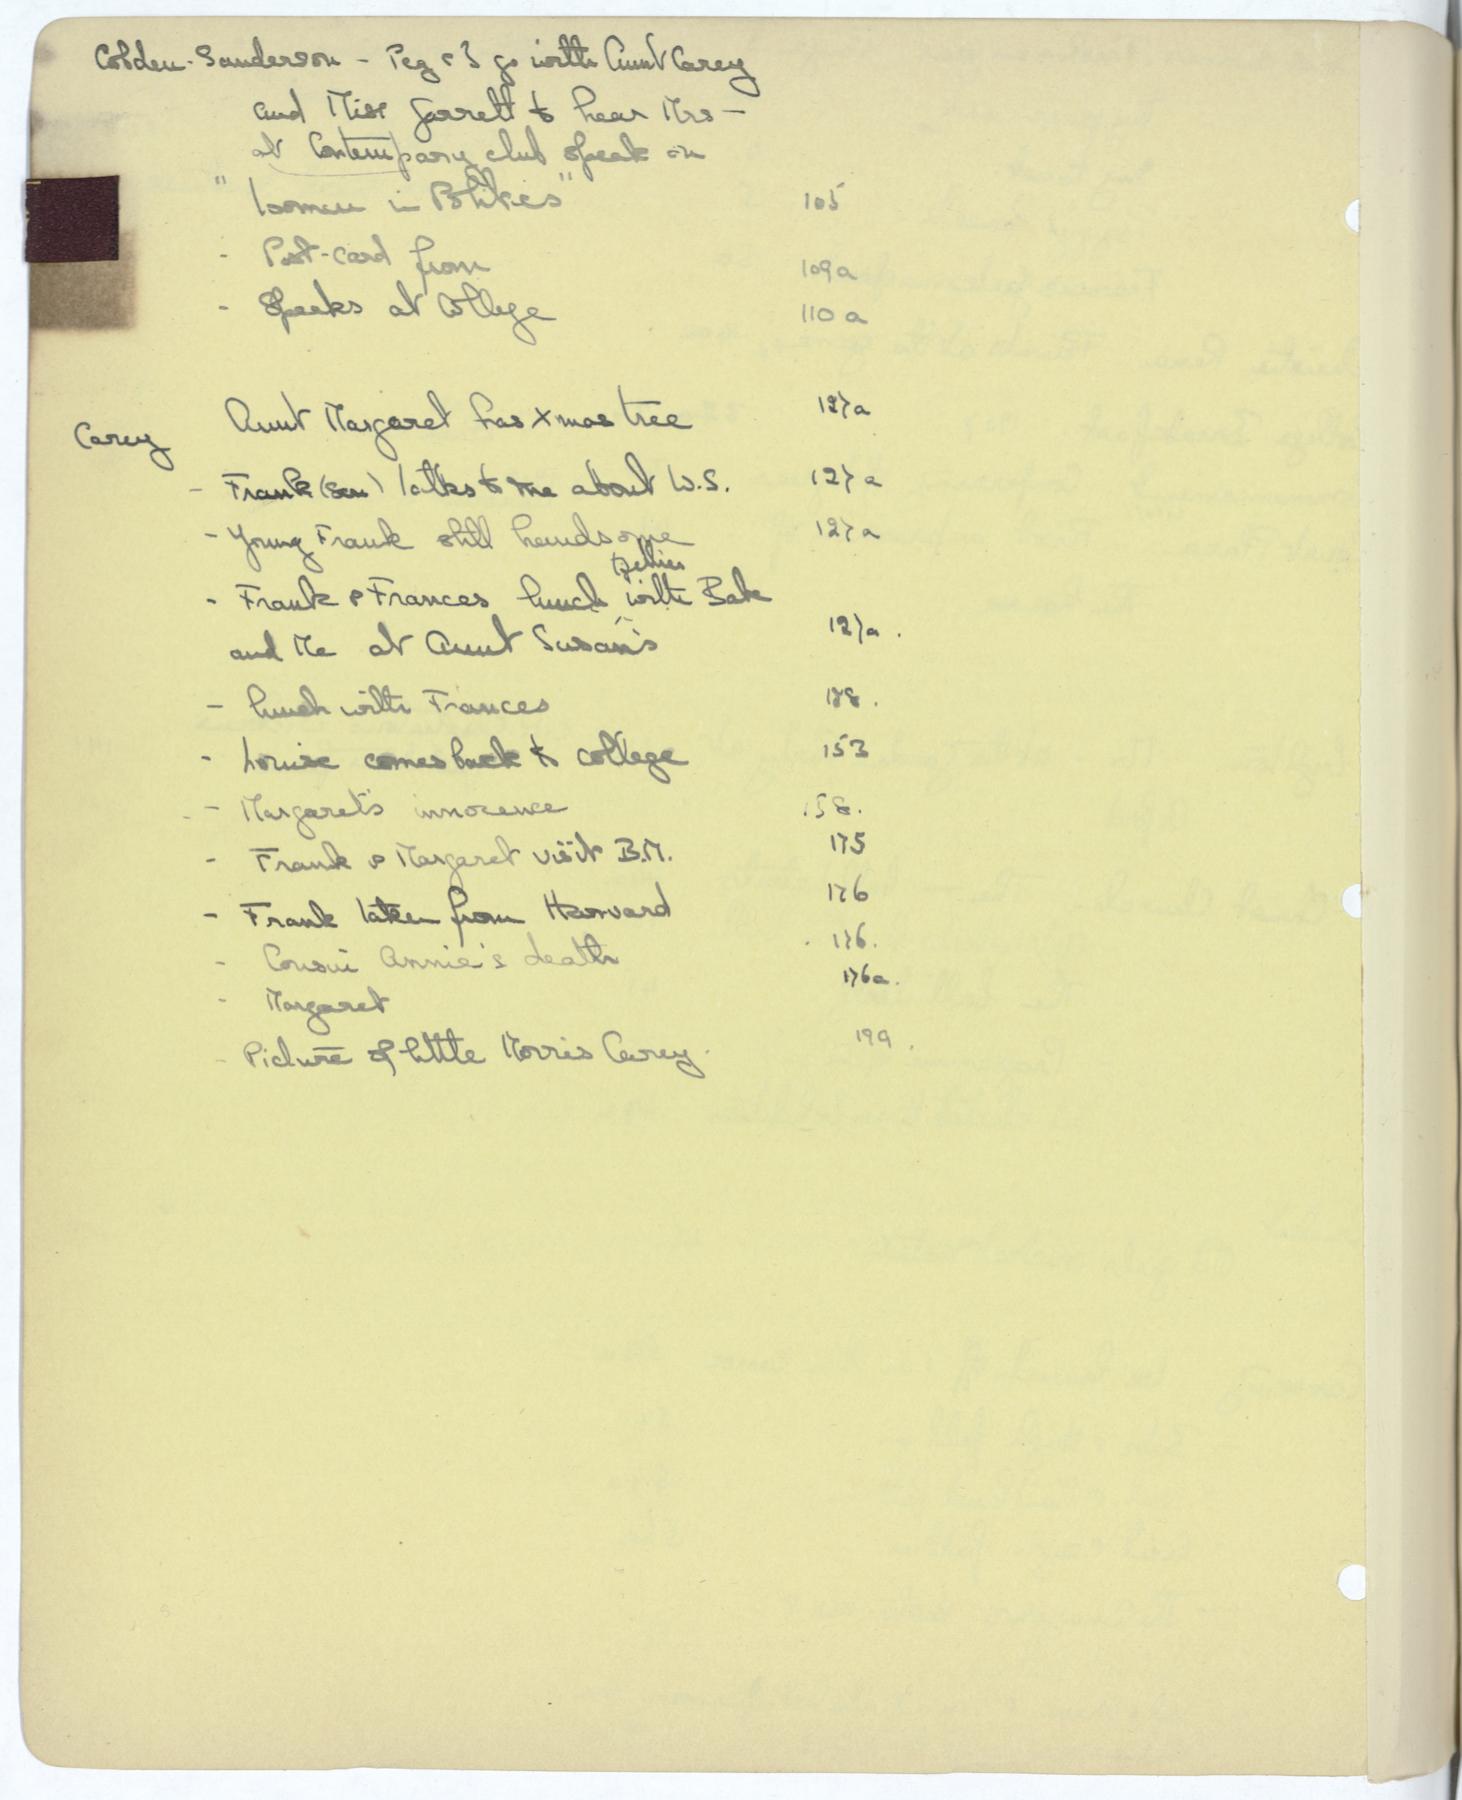 Cobden-Sanderson - Peg & I go with Aunt Carey
and Miss Garrett to hear Mrs -
at Contempary club speak on
"Women in Politics" 105
- Post-card from 109a
- Speaks at College 110a
Carey Aunt Margaret has Xmas tree 127a
- Frank (Sen) talks to me about W.S. 127a
- Young Frank still handsome 127a
- Frank & Frances lunch with Bab
and Me at Aunt Susan's 127a.
- lunch with Frances 128.
- Louise comes back to College 153
- Margaret's innocence 158.
- Frank & Margaret visit B.M. 175
- Frank taken from Harvard 176
- Cousin Annie's death 176.
- Margaret 176a.
- Picture of little Morris Carey. 199.